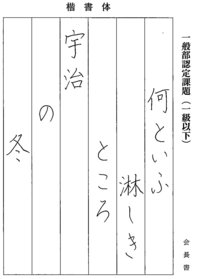 楷書体
一般部認定課題(一級以下)
何といふ
淋しき
ところ
宇治
の
冬
会長書